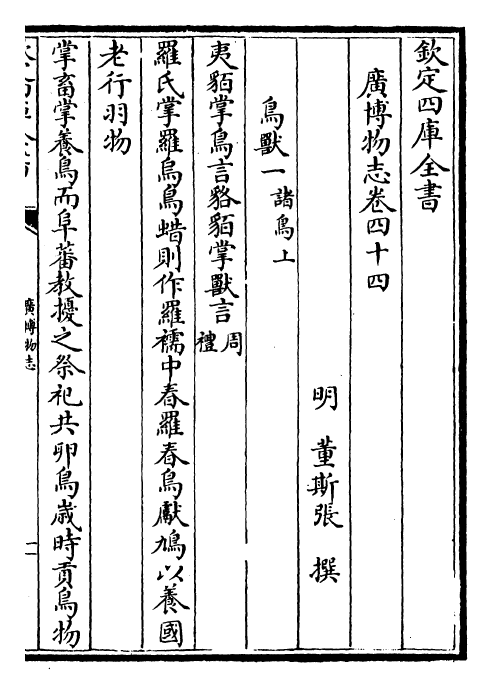 欽定四庫全書
廣博物志卷四十四
明 董斯張 撰
鳥獸一諸鳥上
夷貊掌鳥言貉貊掌獸言周禮
羅氏掌羅烏鳥蜡則作羅襦中春羅春鳥獻鳩以養國
老行羽物
掌畜掌養鳥而阜蕃教擾之祭祀共卵鳥歲時貢鳥物
廣博物志